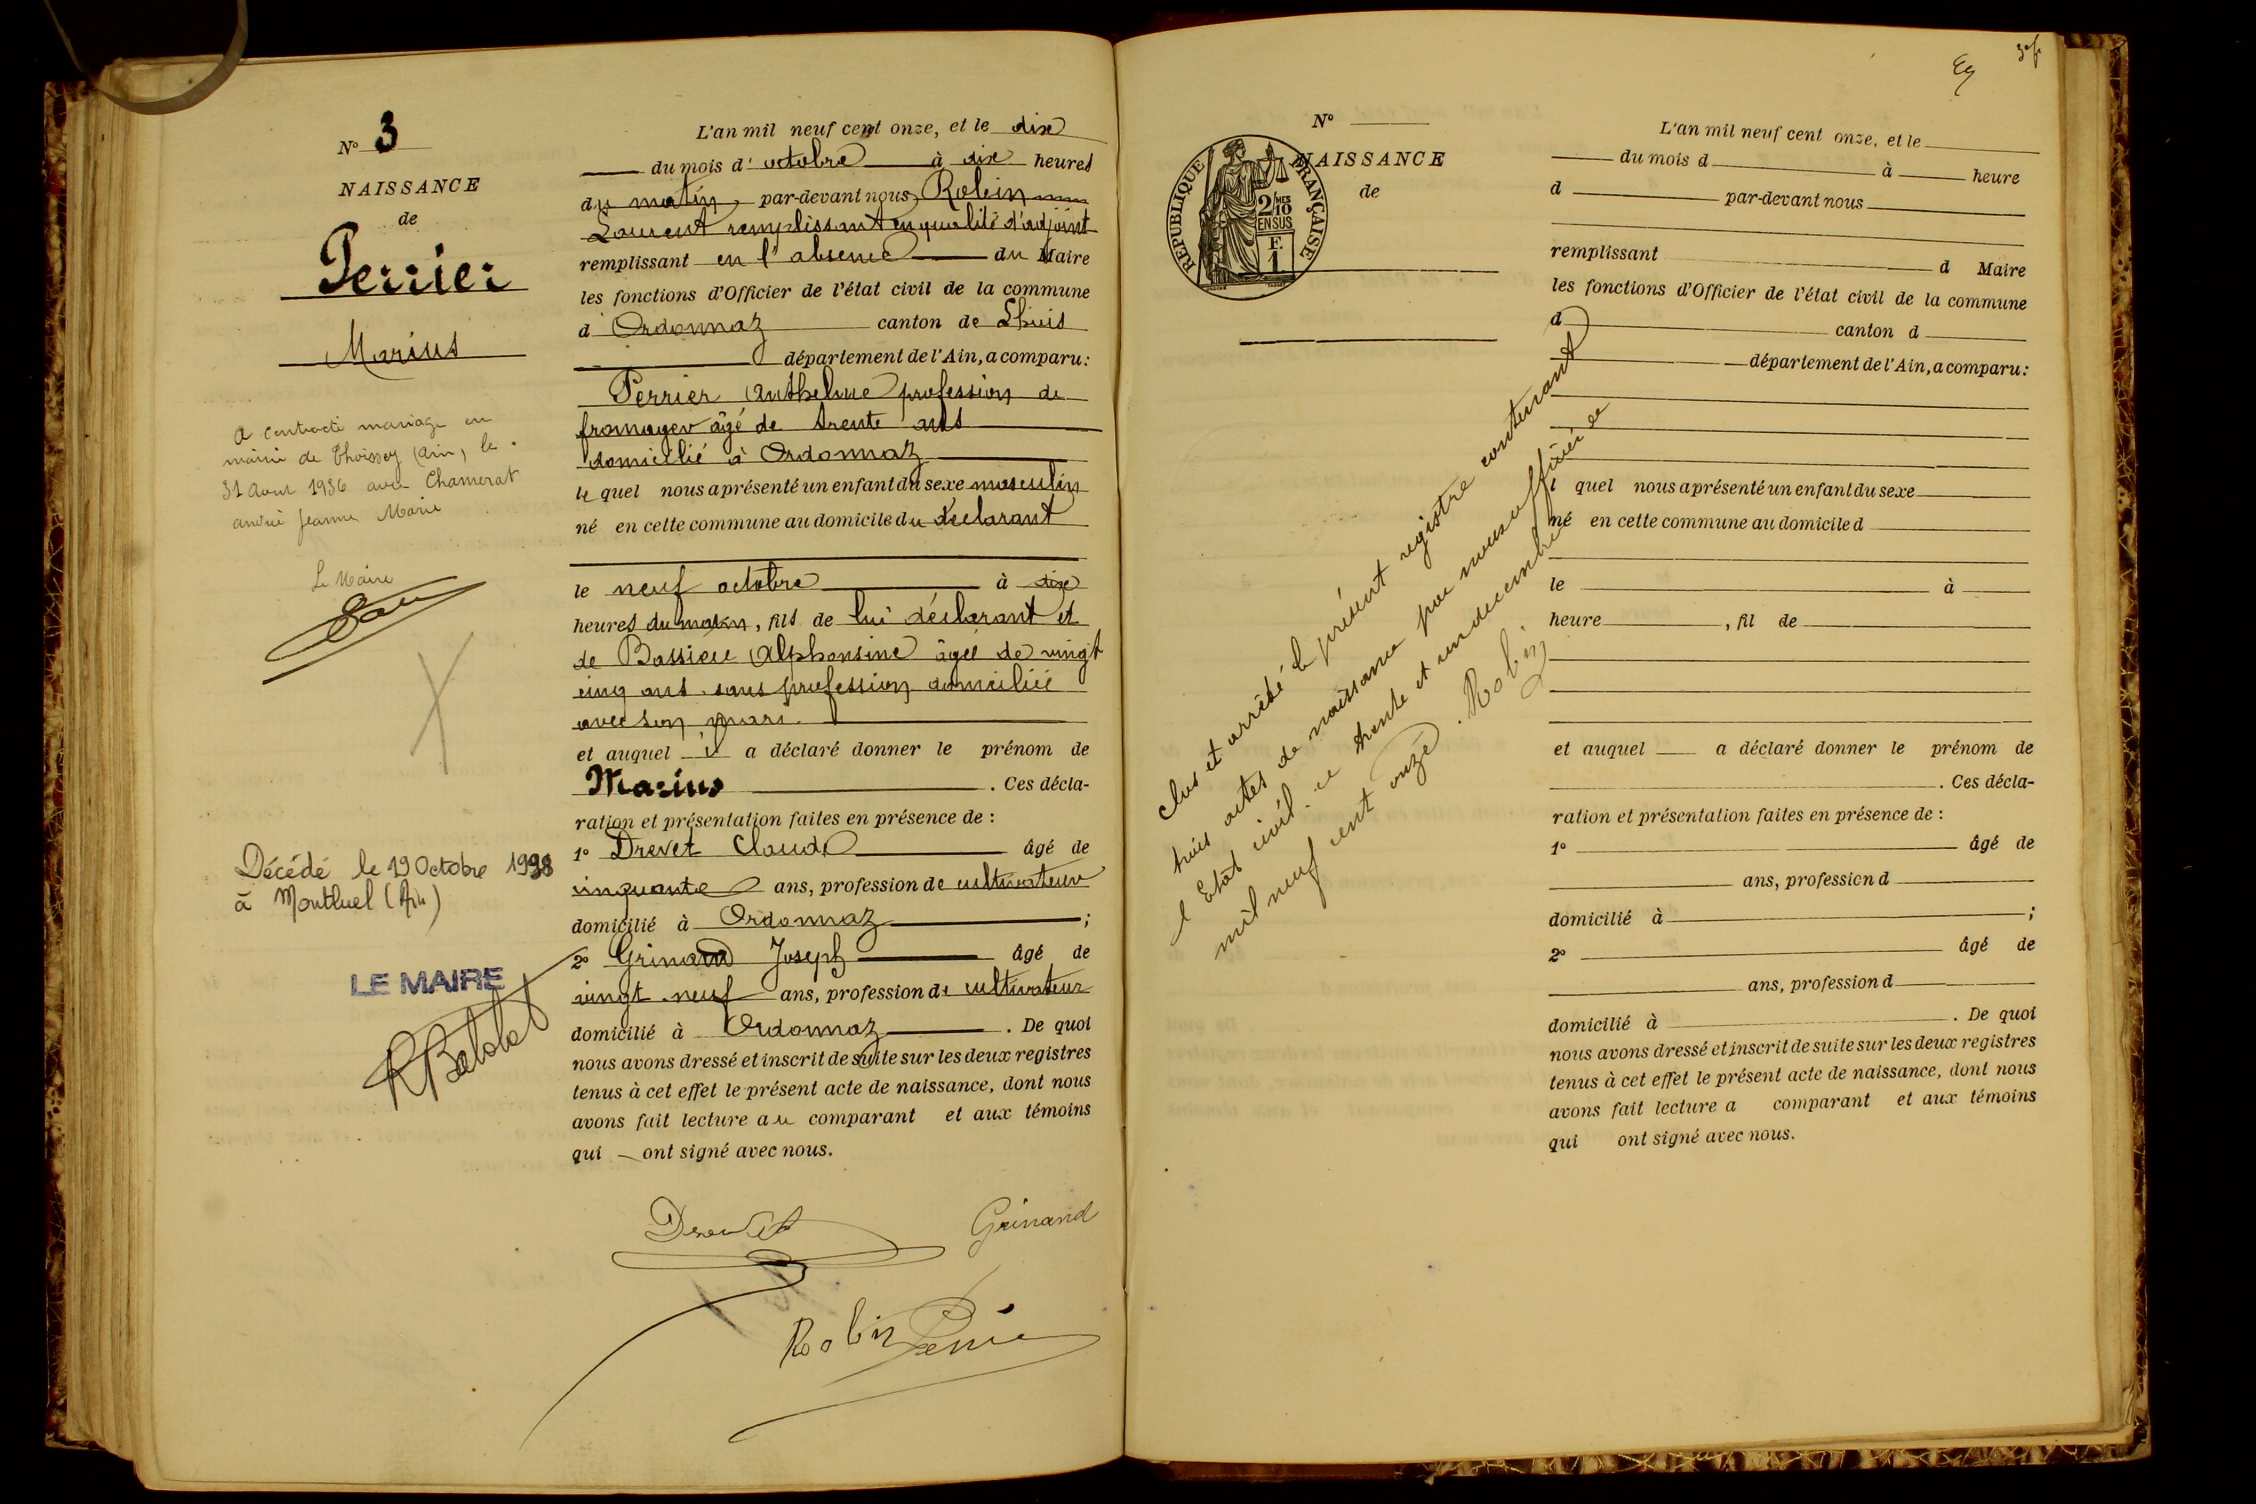 N° 3
NAISSANCE
de
Perrier
Marius
a contracté mariage en
mairie de Thoissey (Ain), le
31 Aout 1936 avec Chamerat
Jeanne Marie
Le Maire
Décédé le 19 Octobre 1998
à Montluel (Ain)
LE MAIRE
L'an mil neuf cent onze, et le dix
du mois d'octobre à dix heures
du matin par-devant nous Robin
Laurent remplissant en qualité d'adjoint
remplissant en l'absence du Maire
les fonctions d'Officier de l'état civil de la commune
d Ordonnaz canton de Lhuis
département de l'Ain, a comparu:
Perrier Anthelme profession de
fromager âgé de trente ans
domicilié à Ordonnaz
le quel nous a présenté un enfant du sexe masculin
né en cette commune au domicile du déclarant
le neuf octobre à dix
heures du matin, fils de lui déclarant et
de Bassieu Alphonsine âgée de vingt
cinq ans sans profession domiciliée
avec son mari.
et auquel il a déclaré donner le prénom de
Marius . Ces décla-
ration et présentation faites en présence de :
1° Drevet Claude âgé de
cinquante ans, profession de cultivateur
domicilié à Ordonnaz ;
2° Grinand Joseph âgé de
vingt-neuf ans, profession de cultivateur
domicilié à Ordonnaz . De quoi
nous avons dressé et inscrit de suite sur les deux registres
tenus à cet effet le présent acte de naissance, dont nous
avons fait lecture au comparant et aux témoins
qui ont signé avec nous.
Drevet Grinand
Robin Perrier
N°
NAISSANCE
de
RÉPUBLIQUE FRANÇAISE
2/10MES
EN SUS
F.
1
Clos et arrêté le présent registre contenant
trois actes de naissance par nous officier de
l'Etat civil ce trente et un decembre
mil neuf cent onze. Robin
L'an mil neuf cent onze, et le
du mois d à heure
d par-devant nous
remplissant d Maire
les fonctions d'Officier de l'état civil de la commune
d canton d
département de l'Ain, a comparu:
l quel nous a présenté un enfant du sexe
né en cette commune au domicile d
le à
heure , fil de
et auquel a déclaré donner le prénom de
. Ces décla-
ration et présentation faites en présence de :
1° âgé de
ans, profession d
domicilié à ;
2° âgé de
ans, profession d
domicilié à . De quoi
nous avons dressé et inscrit de suite sur les deux registres
tenus à cet effet le présent acte de naissance, dont nous
avons fait lecture a comparant et aux témoins
qui ont signé avec nous.